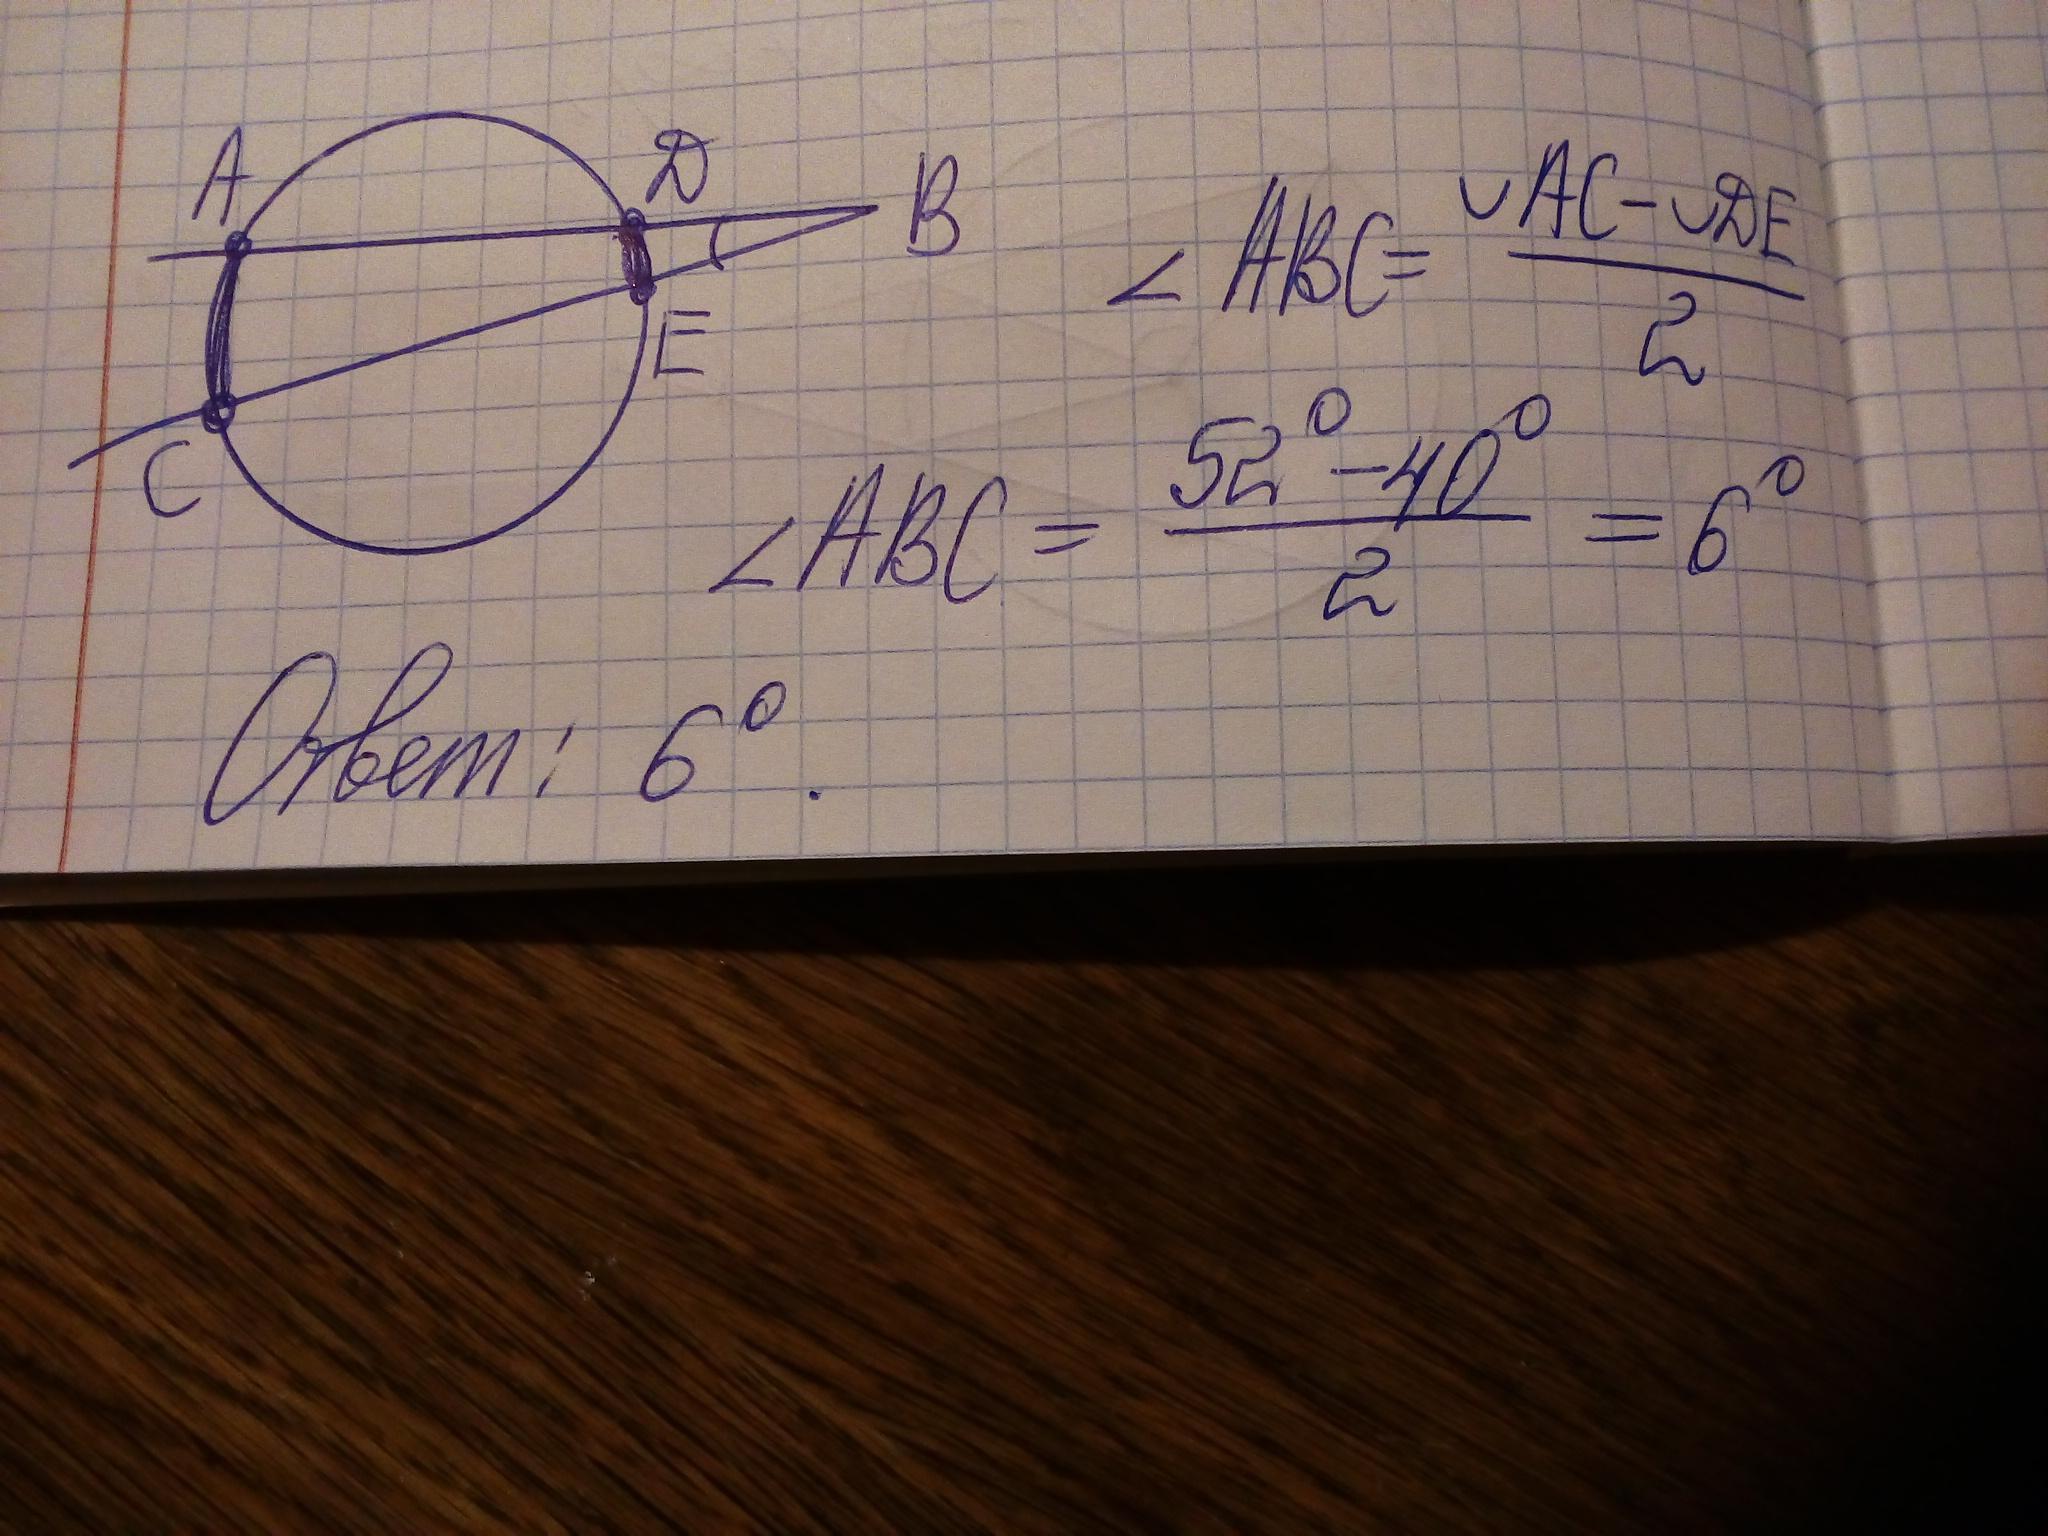 A
D
B
E
C
∠ABC = (◡AC - ◡DE) / 2
∠ABC = (52° - 40°) / 2 = 6°
Ответ: 6°.